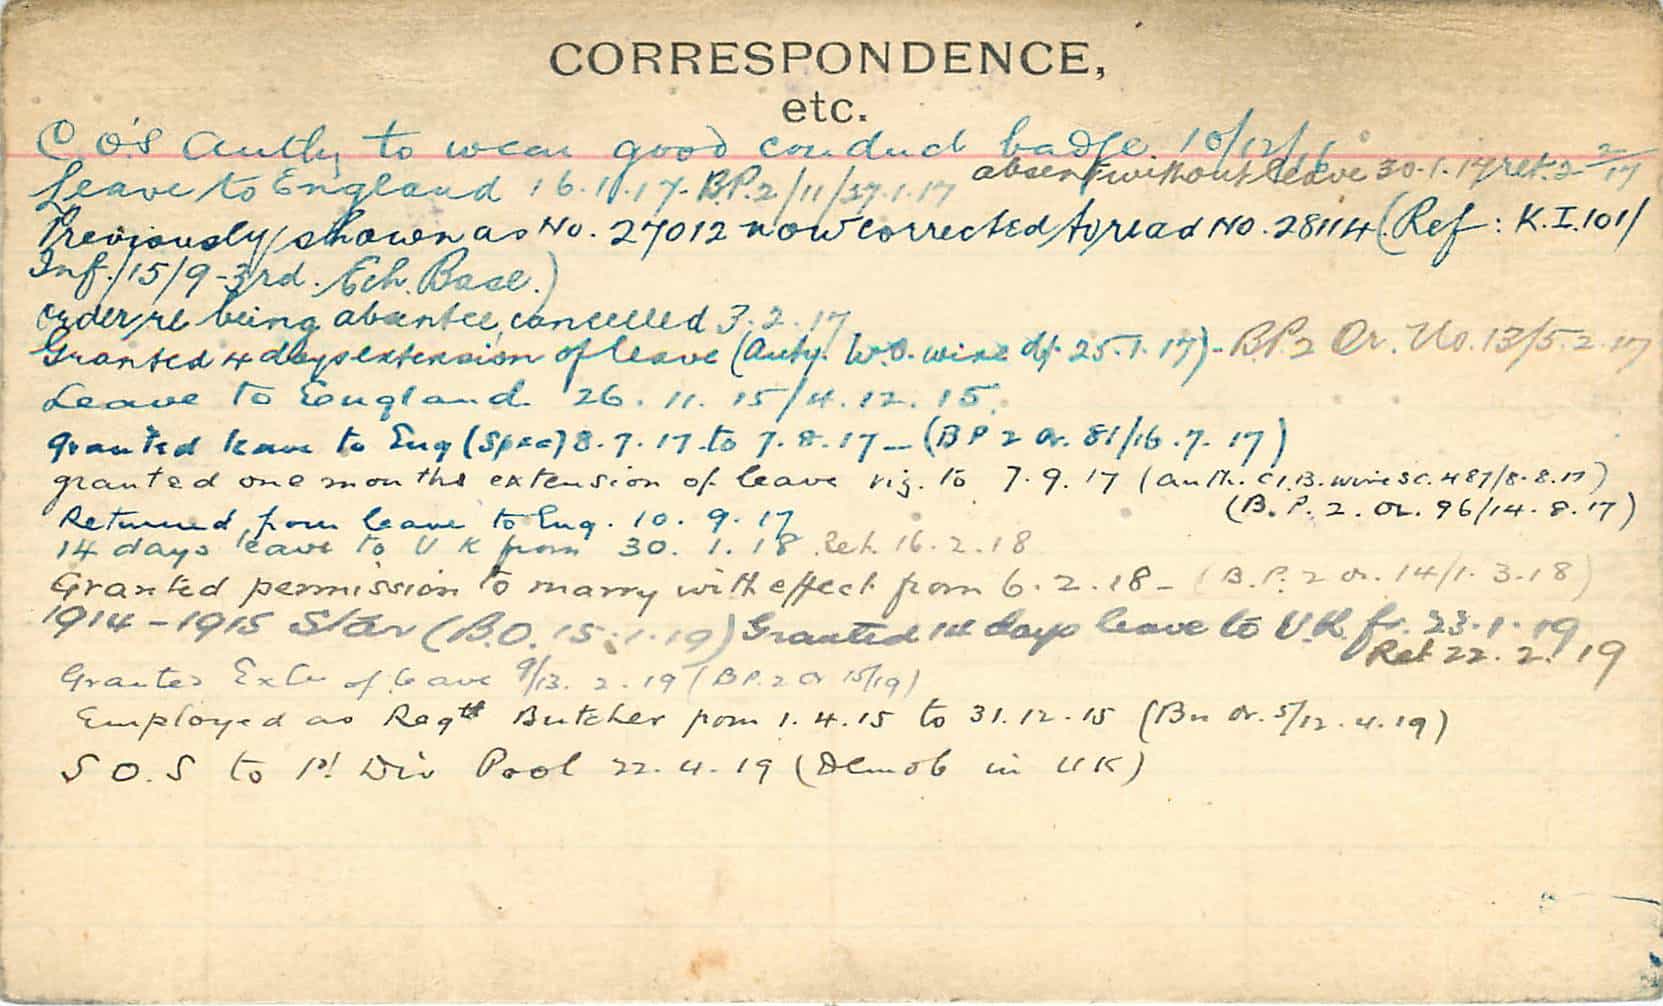 CORRESPONDENCE,
etc.
C.O's Authy to wear good conduct badge. 10/12/16
absent without leave 30.1.17 ret. 2/2/17
Leave to England 16.1.17. B.P.2/11/37.1.17
Previously shown as No. 27012 now corrected to read No. 28114 (Ref: K.I.101/
Inf./15/9-3rd. Ech. Base.)
order re being absentee, cancelled 3.2.17
Granted 4 days extension of leave (Auty. W.O. wire df 25.1.17) - B.P.2 Or. No. 13/5.2.17
Leave to England. 26.11.15/4.12.15.
granted leave to Eng (Spec) 8.7.17 to 7.8.17 - (B P 2 Or. 81/16.7.17)
granted one months extension of leave viz. to 7.9.17 (auth. C.I.B. wire SC. 487/8.8.17)
(B.P. 2. Or. 96/14.8.17)
Returned from leave to Eng. 10.9.17
14 days leave to U K from 30.1.18 Ret. 16.2.18
Granted permission to marry with effect from 6.2.18 - (B.P. 2 Or. 14/1.3.18)
1914-1915 Star (B.O. 15.1.19) Granted 14 days leave to U.K. fr. 23.1.19
Ret 22.2.19
Granted Extn of leave 9/13.2.19 (B P. 2 Or 15/19)
Employed as Regtl Butcher from 1.4.15 to 31.12.15 (Bn Or. 5/12.4.19)
S O.S to P! Div Pool 22.4.19 (Demob in U K)